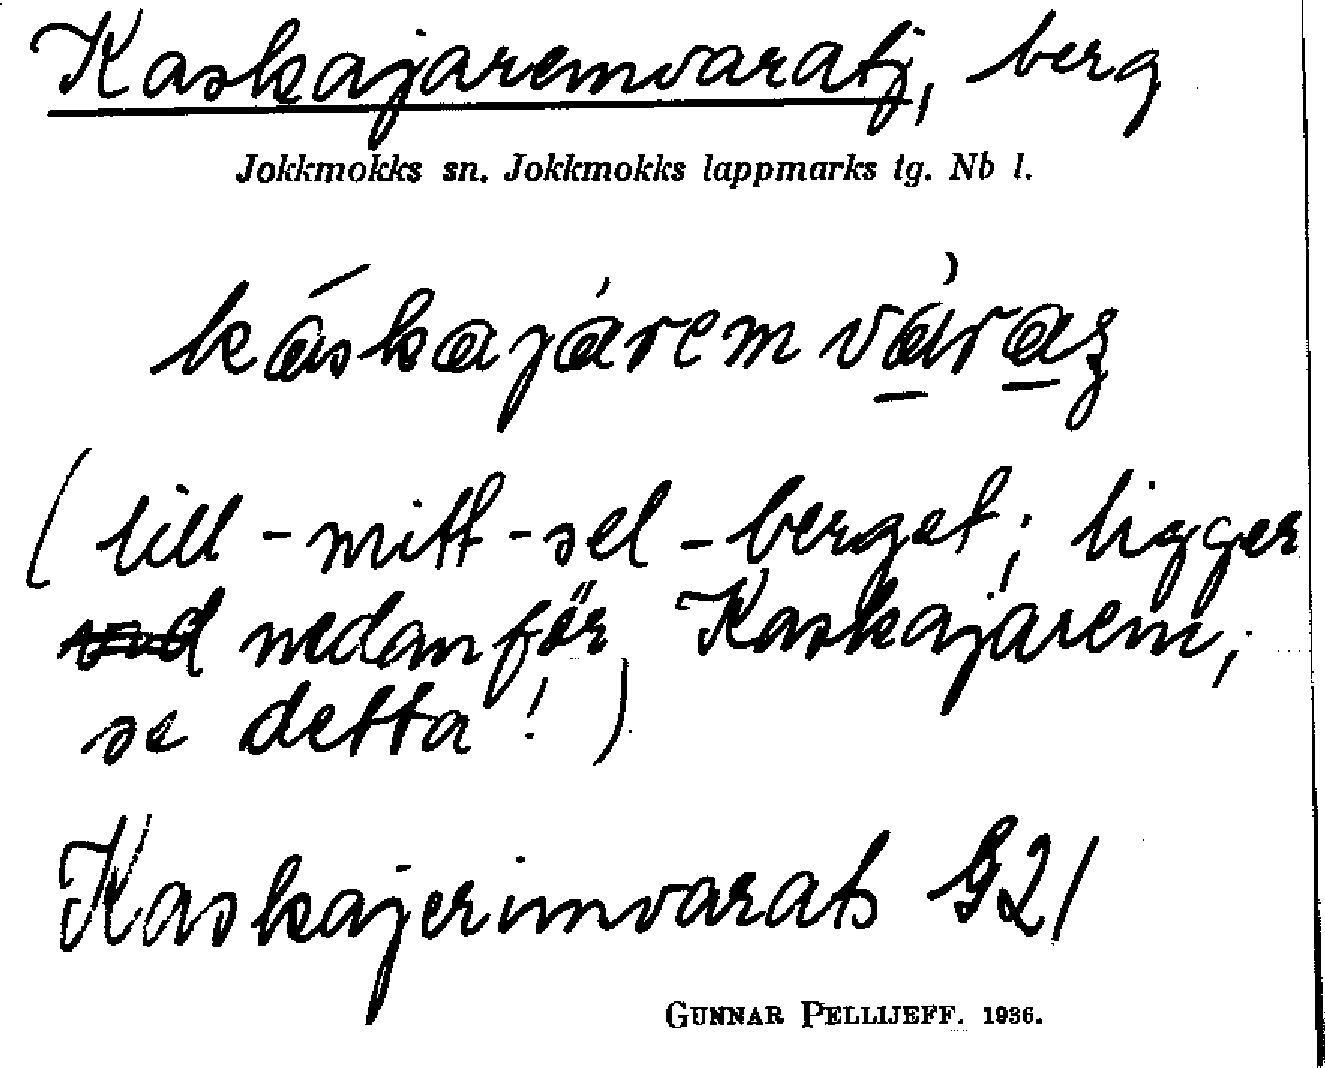 Kaskajaremvaratj, berg
Jokkmokks sn. Jokkmokks lappmarks tg. Nb l.
káskajáremváraʒ
(lill-mitt-sel-berget; ligger
nedanför Kaskajarem,
se detta!)
Kaskajerimvarats G21
GUNNAR PELLIJEFF. 1936.